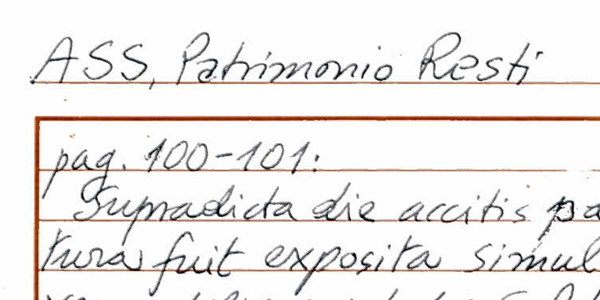 ASS, Patrimonio Resti
pag. 100-101:
Supradicta die accitis pa
tura fuit exposita simul